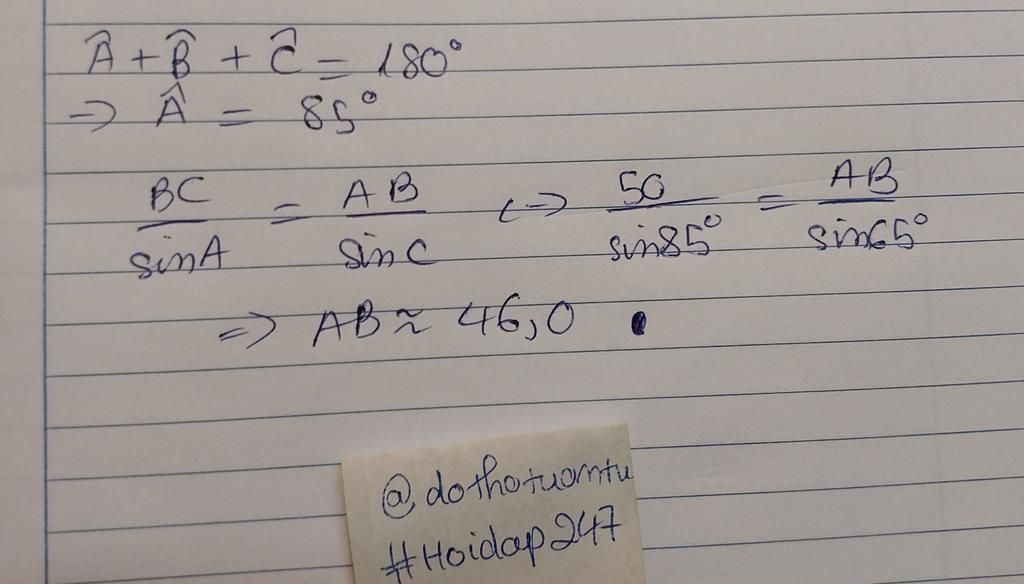 Â + B̂ + Ĉ = 180°
=> Â = 85°
BC/sinA = AB/sinC <=> 50/sin85° = AB/sin65°
=> AB ≈ 46,0
@dothotuomtu
#Hoidap247